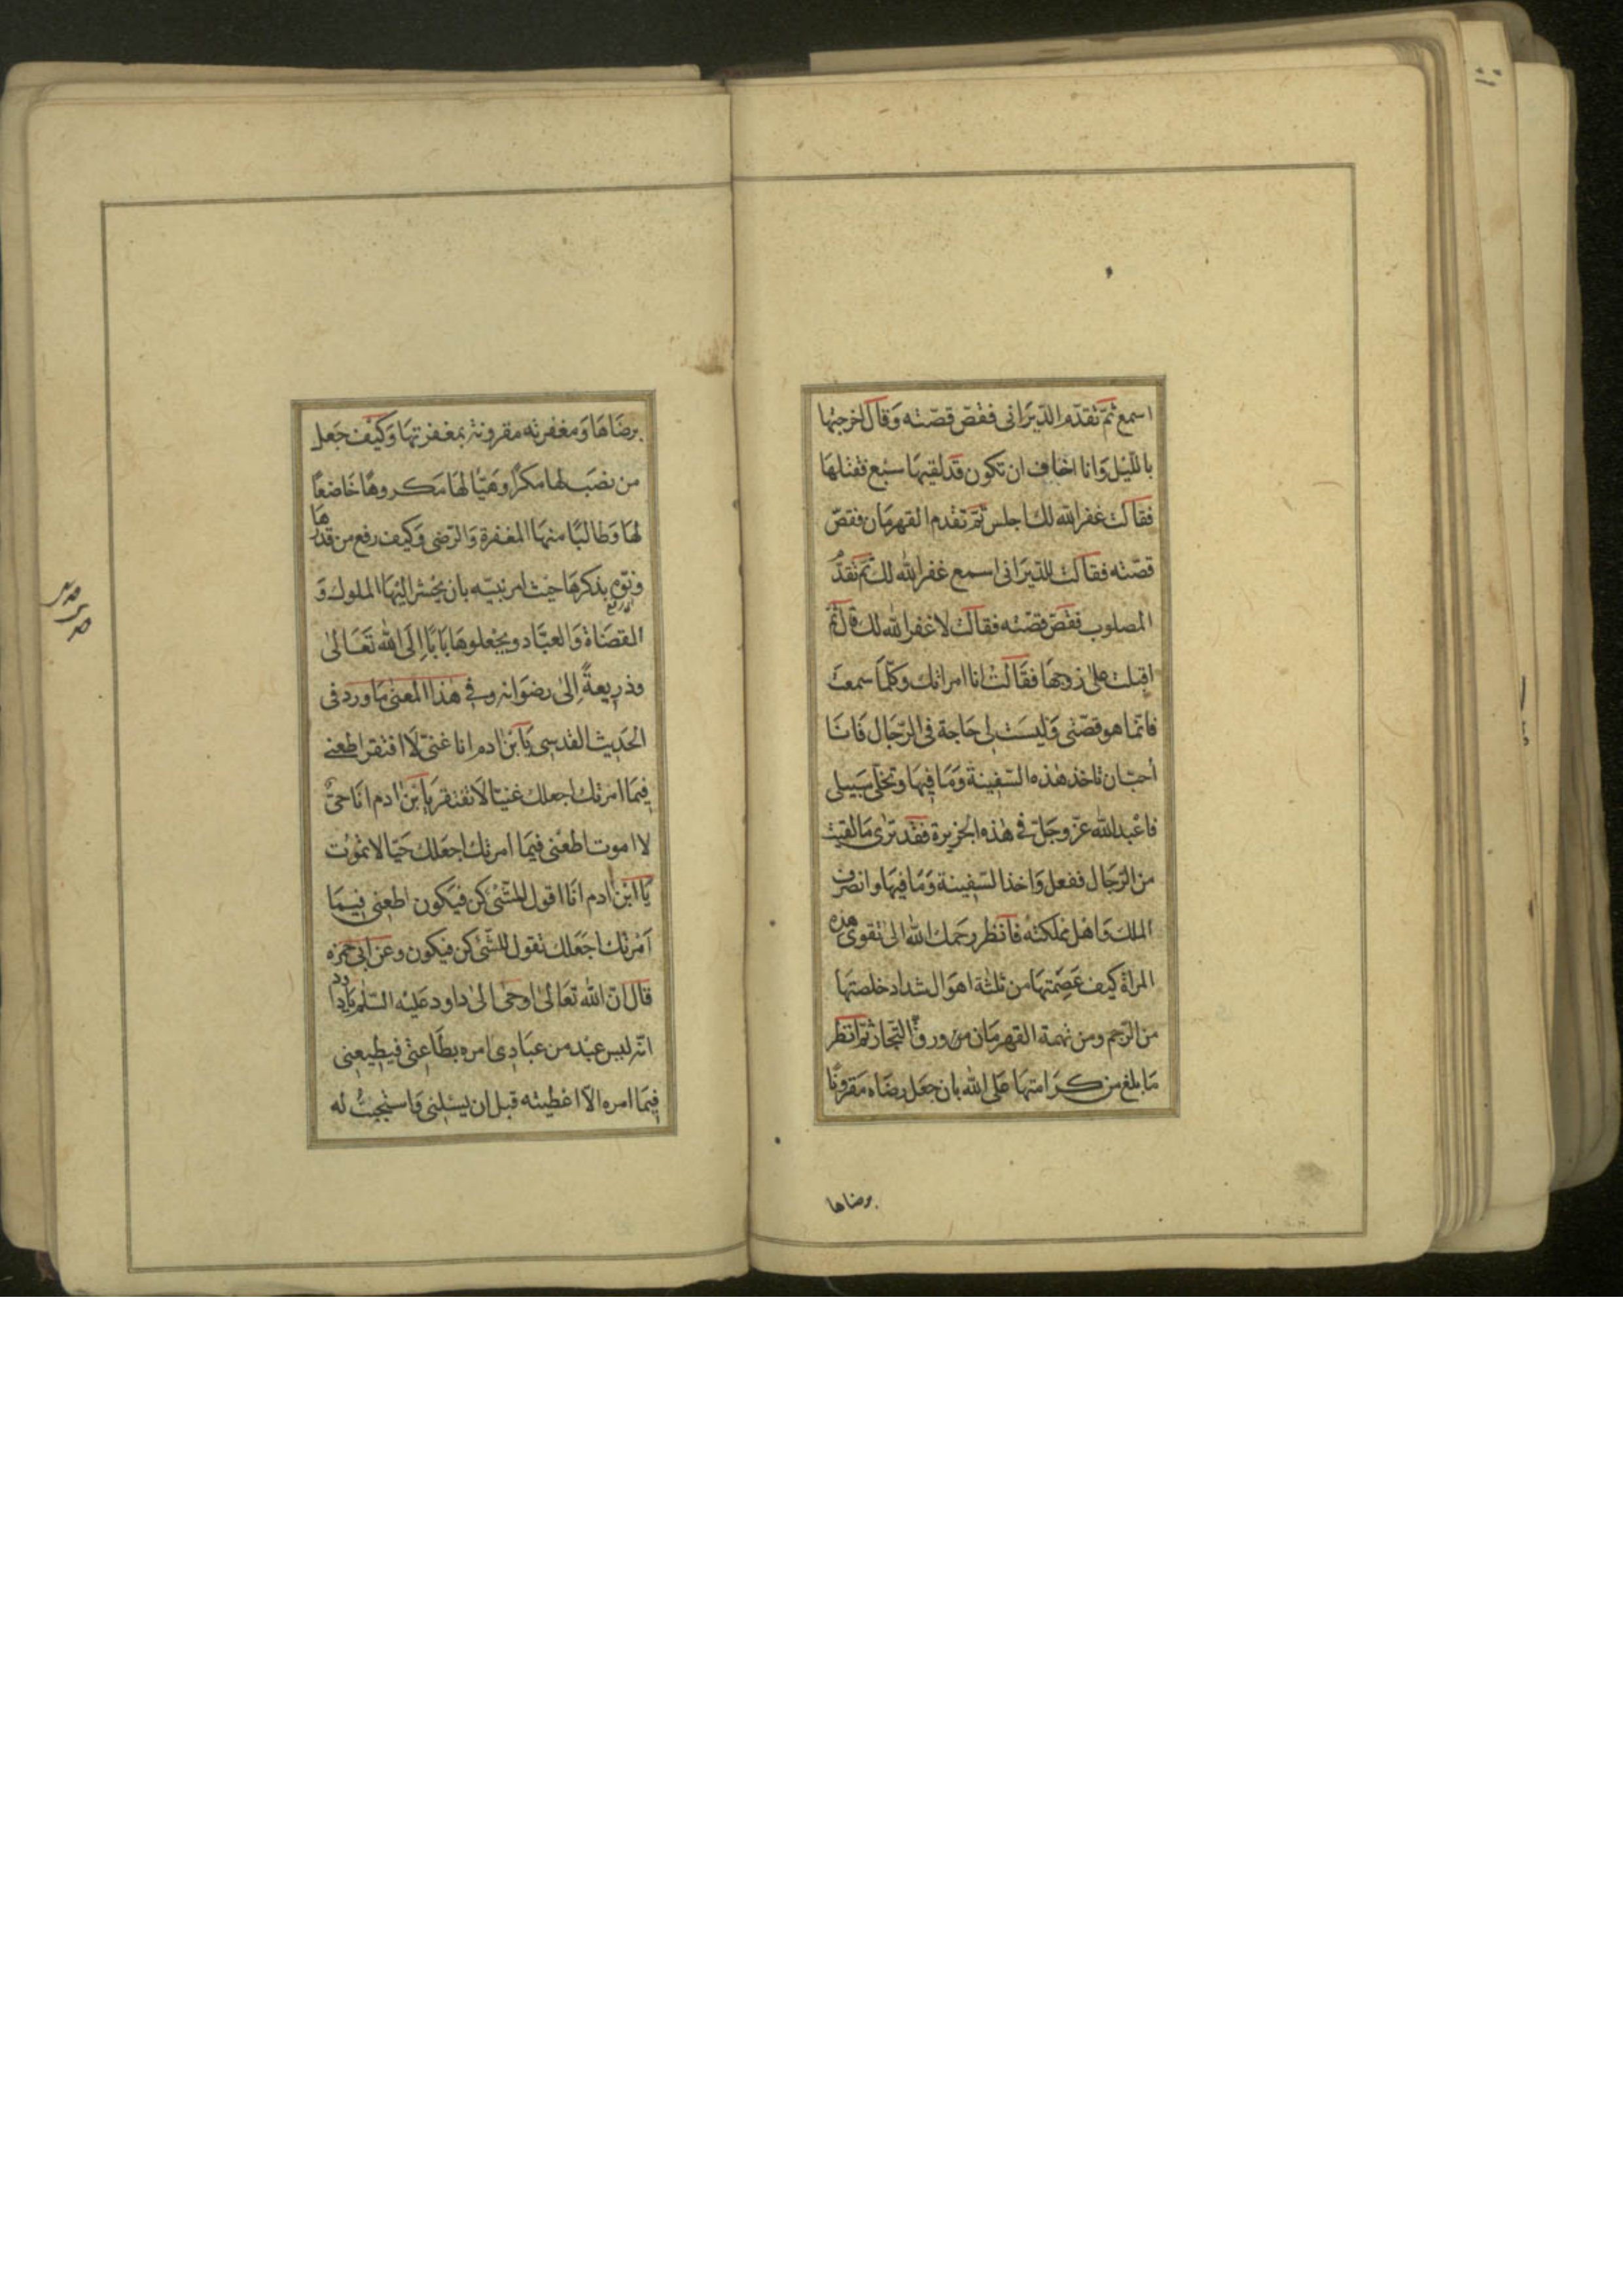 اسمع ثمّ تقدّم الدّيرَانى فقصّ قصّته وَقال اخرجتها
باللّيل وَانا اخاف ان تكون قد لقيهَا سبع فقتلهَا
فقالت غفر الله لك اجلس ثمّ تقدم القهرمَان فقصّ
قصّته فقالت للدّيرَانى اسمع غفر الله لك ثم تقدّم
المصلوب فقصّ قصّته فقالت لا غفر الله لك قال ثمّ
اقبلت على زوجهَا فقَالت انا امراتك وَكلّمَا سمعتَ
فانّما هو قصّتى وَليست لى حَاجة فى الرّجَال فَانَا
أحبّ ان تاخذ هٰذه السّفينة وَمَا فيهَا وتخلّى سَبيلى
فاعْبد الله عزّ وجَلّ فى هٰذه الجزيرة فقد ترٰى مَا لقيت
من الرّجَال ففعل وَاخذ السّفينة وَمَا فيهَا وانصرف
الملك وَاهل مملكته فَانظر رحمك الله الى تقوى هذه
المراة كيف عَصِمتهَا من ثلٰثة اهوَال شداد خلصتهَا
من الرّجم ومن تهمة القهرمَان من ورقّ التّجار ثمّ انظر
مَا بلغ من كرَامتهَا عَلى الله بان جعَل رضَاه مَقرونًا
برضاها
برضَاهَا وَمغفرته مقرونة بمغفرتهَا وَكيْف جَعل
من نصَب لهَا مكرًا وهَيّأ لهَا مَكروهًا خَاضعًا
لهَا وَطالبًا منهَا المغفرة وَالرّضى وَكيف رفع من قدرهَا
ونوّه بذكرهَا حيث امر نبيّه بان يحْشر اليْهَا الملوك وَ
القضَاة وَالعبَّاد ويجْعلوهَا بَابًا إلَى الله تَعَالىٰ
وذريعةً إلىٰ رضوَانه وفى هٰذا المعنى مَا ورد فى
الحَديث القدسى يَا بْن اٰدم انا غنىّ لَا افتقر اطعنى
فيمَا امرتك اجعلك غنيّا لَا تفتقر يَا بْن اٰدم انَا حىّ
لا اموت اطعْنى فيمَا امرتك اجعَلك حَيّا لا تمُوت
يَا ابْن اٰدم انَا اقول للشّئ كن فيَكون اطعنى فيمَا
أمَرْتك اجَعَلك تقول للشّئ كن فيكون وعن ابى حمزه
قال انّ الله تعَالىٰ اوحىٰ الىٰ داود عَليْه السّلٰم يَا داود
انّه ليس عبْد من عبَادى امره بطَاعتى فيطيعنى
فيمَا امره الّا اعْطيته قبل ان يسئلنى وَاستجيبُ له